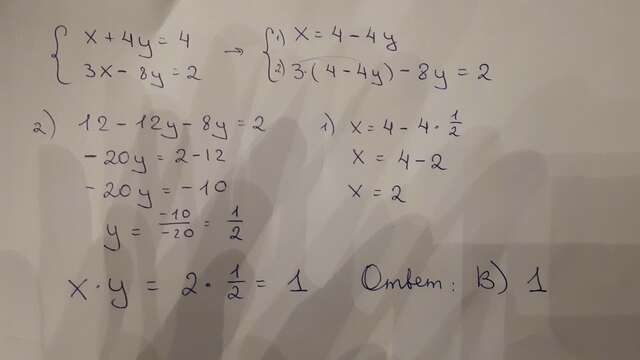 { x + 4y = 4 → { 1) x = 4 - 4y
3x - 8y = 2 2) 3·(4 - 4y) - 8y = 2
2) 12 - 12y - 8y = 2
-20y = 2 - 12
-20y = -10
y = -10/-20 = 1/2
1) x = 4 - 4·1/2
x = 4 - 2
x = 2
x·y = 2·1/2 = 1 Ответ: В) 1